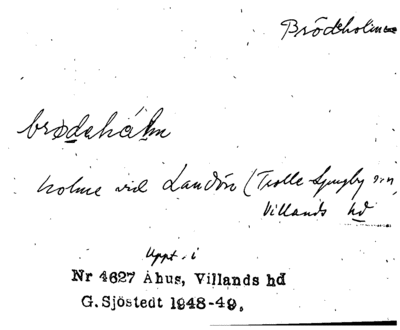 Brödeholm
brødahálm
holme vid Landön (Trolle Ljungby sn
Villands hd
Uppt. i
Nr 4627 Åhus, Villands hd
G. Sjöstedt 1948-49.